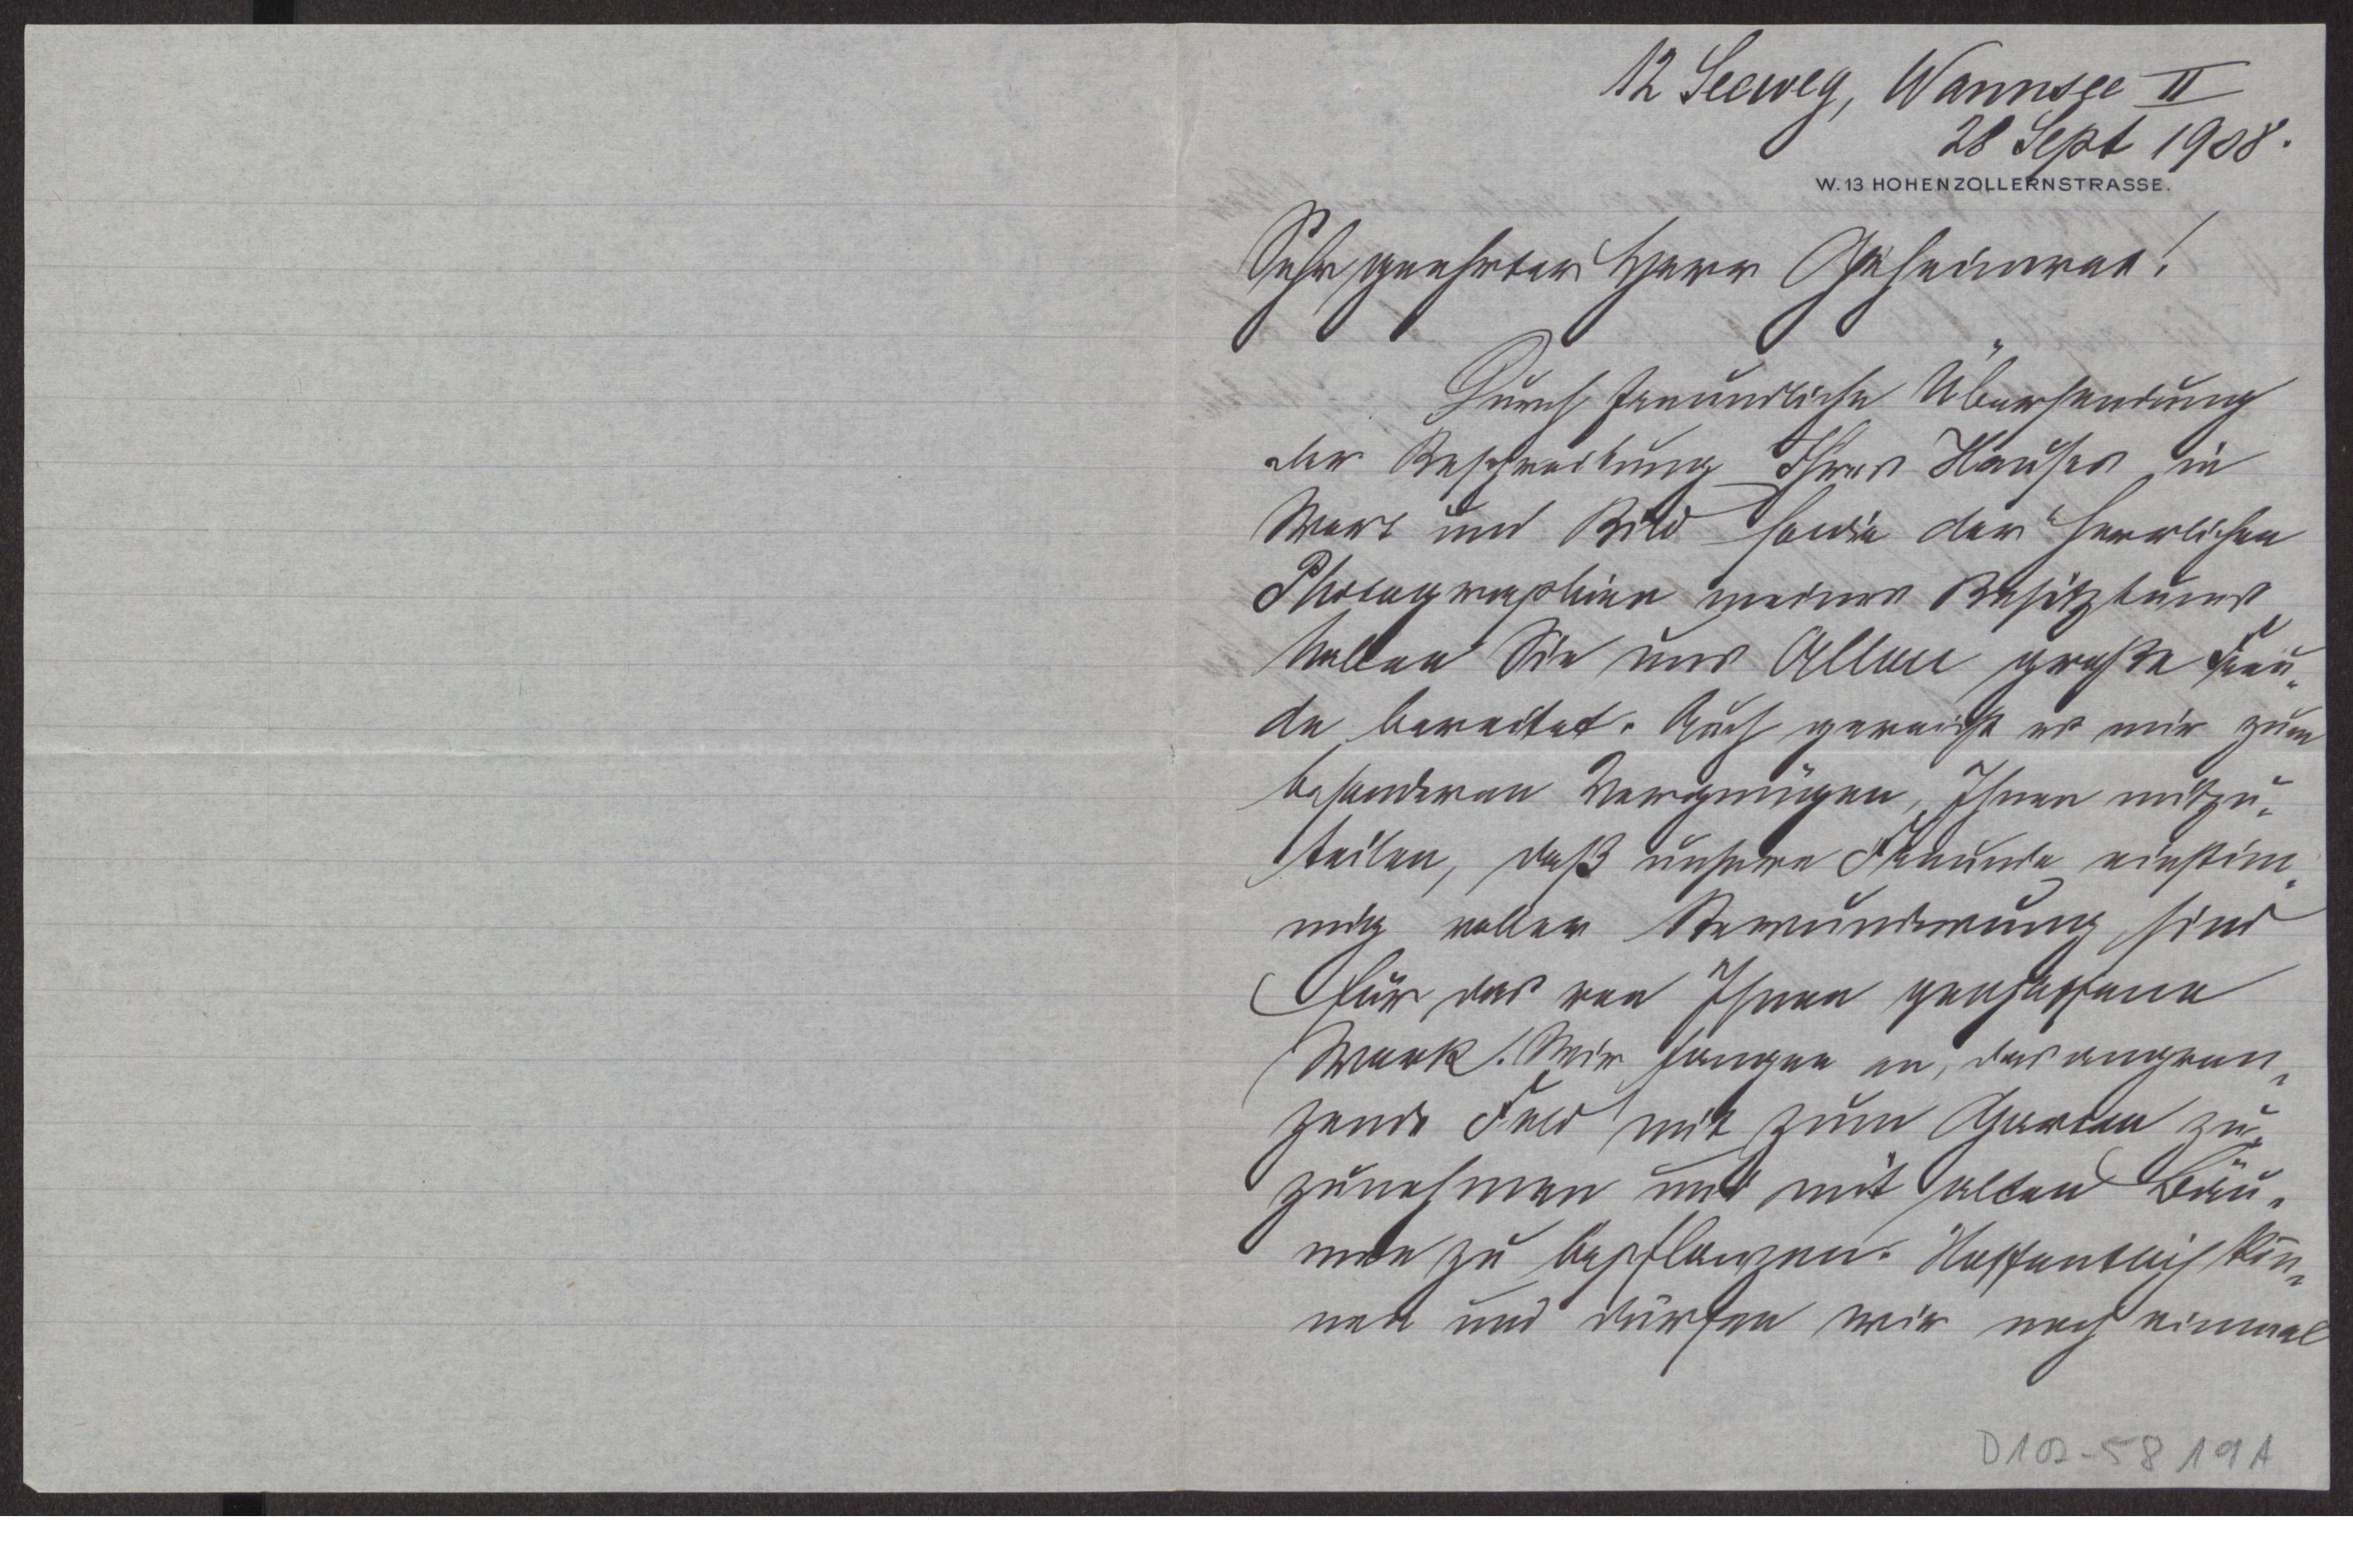 12 Seeweg, Wannsee II
28 Sept 1908.
W. 13 HOHENZOLLERNSTRASSE.
Sehr geehrter Herr Geheimrat!
Durch freundliche Übersendung
der Beschreibung Ihres Hauses in
Wort und Bild sowie der herrlichen
Photographien meines Besitztums
haben Sie uns Allen große Freu-
de bereitet. Auch gereicht es mir zum
besonderen Vergnügen, Ihnen mitzu-
teilen, daß unsere Freunde einstim-
mig voller Bewunderung sind
für das von Ihnen geschaffene
Werk! Wir fangen an, das angren-
zende Feld mit zum Garten zu-
zunehmen und mit alten Bäu-
men zu bepflanzen. Hoffentlich kön-
nen und dürfen wir noch einmal
D102-58 19A